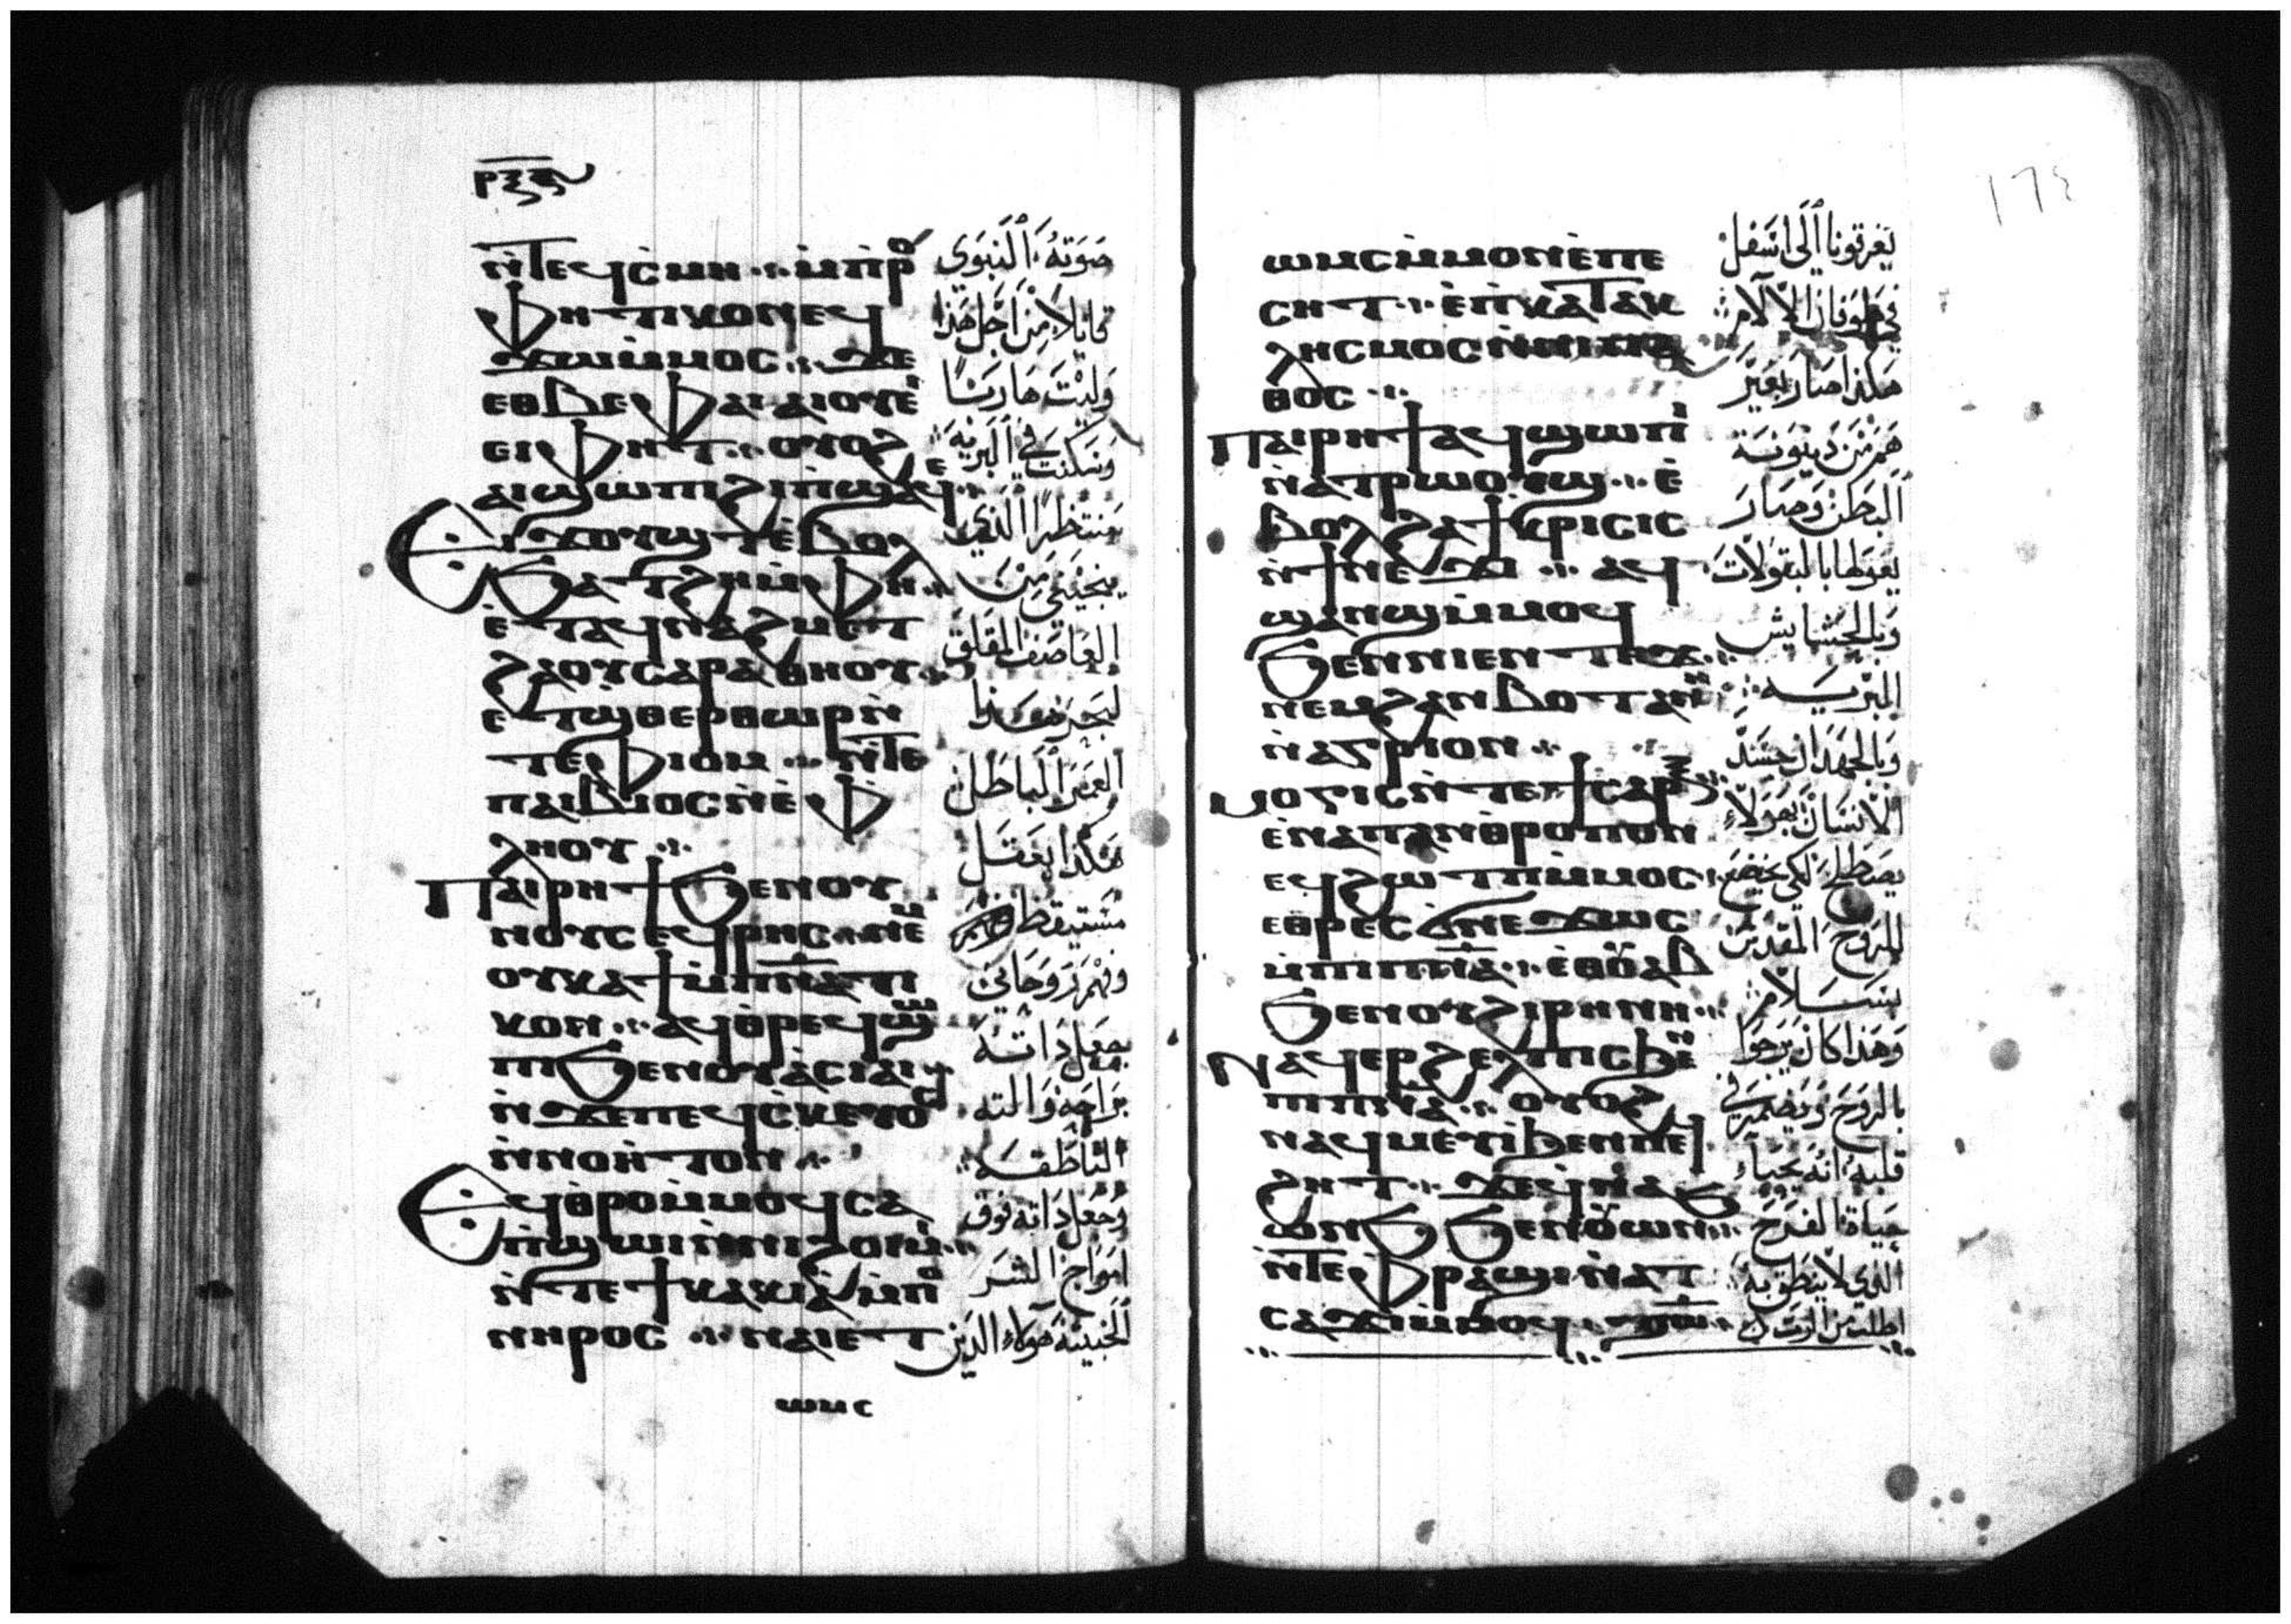 ⲣⲝⲅ
ⲛ̀ⲧⲉϥⲥⲙⲏ ⲙ̀ⲡⲣⲟ
ⲫⲏⲧⲓⲕⲟⲛ ⲉϥ
ϫⲱⲙ̀ⲙⲟⲥ ϫⲉ
ⲉⲑⲃⲉⲫⲁⲓ ⲁⲓⲟⲩⲉ̀
ⲉⲓ ⲫⲏⲧ ⲟⲩⲟϩ
ⲁⲓϣⲱⲡⲓ ϩⲓⲡ̀ϣⲁϥⲉ
Ⲉⲓϫⲟⲩϣⲧ ⲉ̀ⲃⲟⲗ
ϧⲁⲧϩⲏ ⲙ̀ⲫⲏ
ⲉ̀ⲧⲁϥⲛⲁϩⲙⲉⲧ
ϩⲁⲟⲩⲥⲁⲣⲁⲑⲏⲟⲩ
ⲉⲧϣⲑⲉⲣⲑⲱⲣ ⲛ̀
ⲧⲉⲫⲓⲟⲙ ⲛ̀ⲧⲉ
ⲡⲁⲓⲃⲓⲟⲥ ⲛ̀ⲉ̀ⲫ
ⲗⲏⲟⲩ
Ⲡⲁⲓⲣⲏϯ ϧⲉⲛⲟⲩ
ⲛⲟⲩⲥ ⲉϥⲣⲏⲥ ⲛⲉⲙ
ⲟⲩⲕⲁϯ ⲙ̀ⲡⲛⲁⲧⲓ
ⲕⲟⲛ ⲁϥⲑⲣⲉϥϣⲱ
ⲡⲓ ϧⲉⲛⲟⲩⲁ̀ⲥⲓⲁⲓ
ⲛ̀ϫⲉⲡⲉϥⲥ̀ⲕⲉⲩⲟⲥ
ⲛ̀ⲛⲟⲏ̀ⲧⲟⲛ
Ⲉϥⲑⲣⲟ ⲙ̀ⲙⲟϥ ⲥⲁ
ⲡ̀ϣⲱⲓ ⲛ̀ⲛⲓϩⲱⲓⲙⲓ
ⲛ̀ⲧⲉϯⲕⲁⲕⲓⲁ̀ ⲙ̀ⲡⲟ
ⲛⲏⲣⲟⲥ ⲛⲁⲓ ⲉⲧ
ⲱⲙⲥ
صوته النبوي
قايلا من اجل هذا
وليت هاربا
وسكنت في البرية
منتظرا الذي
ينجيني من
العاصف المقلق
لبحر هذا
العمر الباطل
هكذا بعقل
مستيقظ
وفهم روحاني
جعل ذاته
براحة والته
الناطقه
وجعل ذاته فوق
امواج الشر
الخبيثه هولاء الذين
١٦٤
ⲱⲙⲥ ⲙ̀ⲙⲟⲛ ⲉ̀ⲡⲉ
ⲥⲏⲧ ⲉ̀ⲡⲕⲁⲧⲁⲕ
ⲗⲏⲥⲙⲟⲥ ⲛ̀ⲛⲓⲡⲁ
ⲑⲟⲥ
Ⲡⲁⲓⲣⲏϯ ⲁϥϣⲱⲡⲓ
ⲛ̀ⲁⲧⲣⲱⲟⲩϣ ⲉ̀
ⲃⲟⲗ ϩⲁϯⲕⲣⲓⲥⲓⲥ
ⲛ̀ϯⲛⲉϫⲓ ⲁϥ
ϣⲁⲛϣ ⲙ̀ⲙⲟϥ
ϧⲉⲛⲛⲓⲉⲛⲧⲏϫ
ⲛⲉⲙϩⲁⲛⲃⲟⲧⲁⲛⲏ
ⲛ̀ⲁⲅⲣⲓⲟⲛ
Ⲙⲟⲅⲓⲥ ⲛ̀ⲧⲉϯⲥⲁⲣⲝ
ⲉ̀ⲛⲁⲡⲁⲛⲑⲣⲟⲡⲟⲛ
ⲉϥϩⲱⲧⲡ ⲙ̀ⲙⲟⲥ
ⲉⲑⲣⲉⲥϭⲛⲉϫⲱⲥ
ⲙ̀ⲡⲓⲡⲛⲁ ⲉⲑⲟⲩⲁⲃ
ϧⲉⲛⲟⲩϩⲓⲣⲏⲛⲏ
Ⲛⲁϥⲉⲣϩⲉⲗⲡⲓⲥ ϧⲉⲛ
ⲡⲓⲡⲛⲁ ⲟⲩⲟϩ
ⲛⲁϥⲙⲉⲩⲓ ϧⲉⲛⲡⲉϥ
ϩⲏⲧ ϫⲉϥⲛⲁ
ⲱⲛϧ ϧⲉⲛⲟⲩⲱⲛϧ
ⲛ̀ⲧⲉⲫⲣⲁϣⲓ ⲛ̀ⲁⲧ
ⲥⲁϫⲓ ⲙ̀ⲙⲟϥ
يغرقونا الى اسفل
في طوفان الالام
هكذا صار بغير
هم من دينونة
البطن وصار
يعولها بالبقولات
وبالحشايش
البرية
وبالجهد ان جسد
الانسان بهولاء
يصطلح لكي يخضع
للروح المقدس
بسلام
وهذا كان يرجوا
بالروح ويضمر في
قلبه انه يحيا
حياة الفرح
الذي لا ينطق به
اطلب من الرب